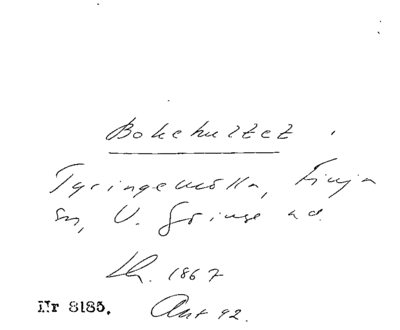 Bokehultet.
Tyringemölla, Finja
sn, V. Göinge hd.
Lh. 1867
Nr 8185. Ant 92.